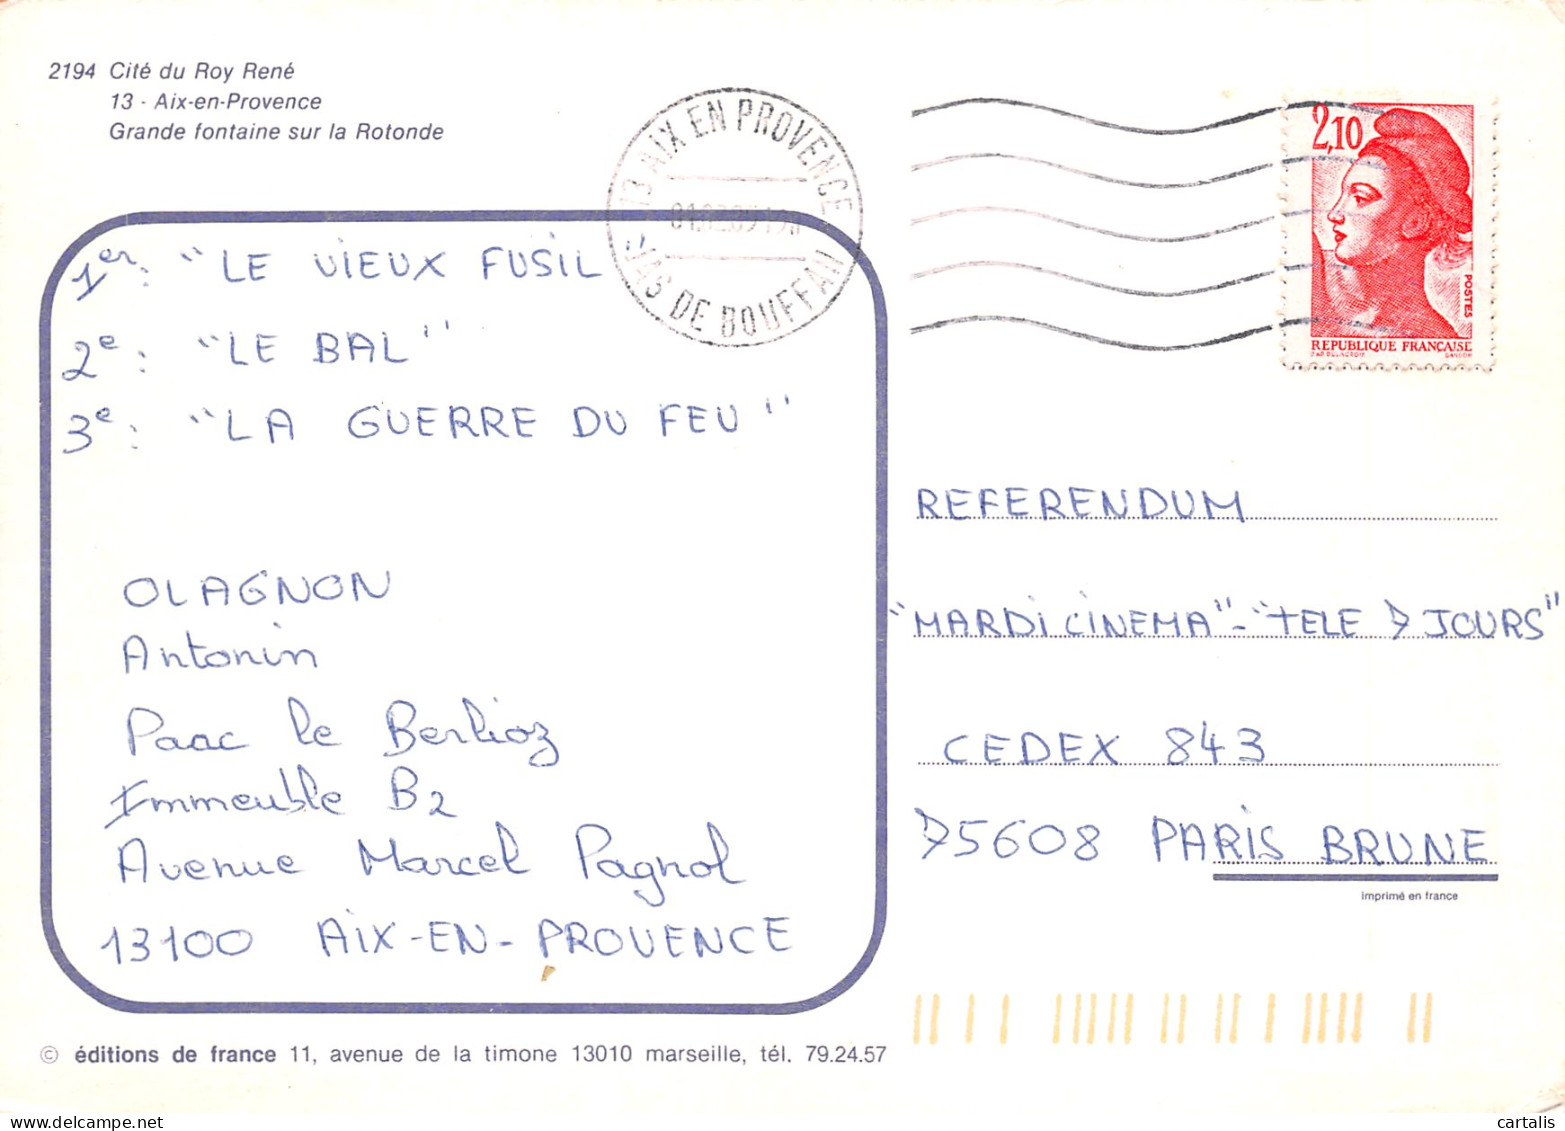 2194 Cité du Roy René
13 - Aix-en-Provence
Grande fontaine sur la Rotonde
13 AIX EN PROVENCE
JAS DE BOUFFAN
2,10
POSTES
REPUBLIQUE FRANÇAISE
D'AP. DELACROIX GANDON
1er: "LE VIEUX FUSIL
2e: "LE BAL"
3e: "LA GUERRE DU FEU"
OLAGNON
Antonin
Paac le Berlioz
Immeuble B2
Avenue Marcel Pagnol
13100 AIX-EN-PROVENCE
REFERENDUM
"MARDI CINEMA"-"TELE 7 JOURS"
CEDEX 843
75608 PARIS BRUNE
imprimé en france
© éditions de france 11, avenue de la timone 13010 marseille, tél. 79.24.57
cartalis